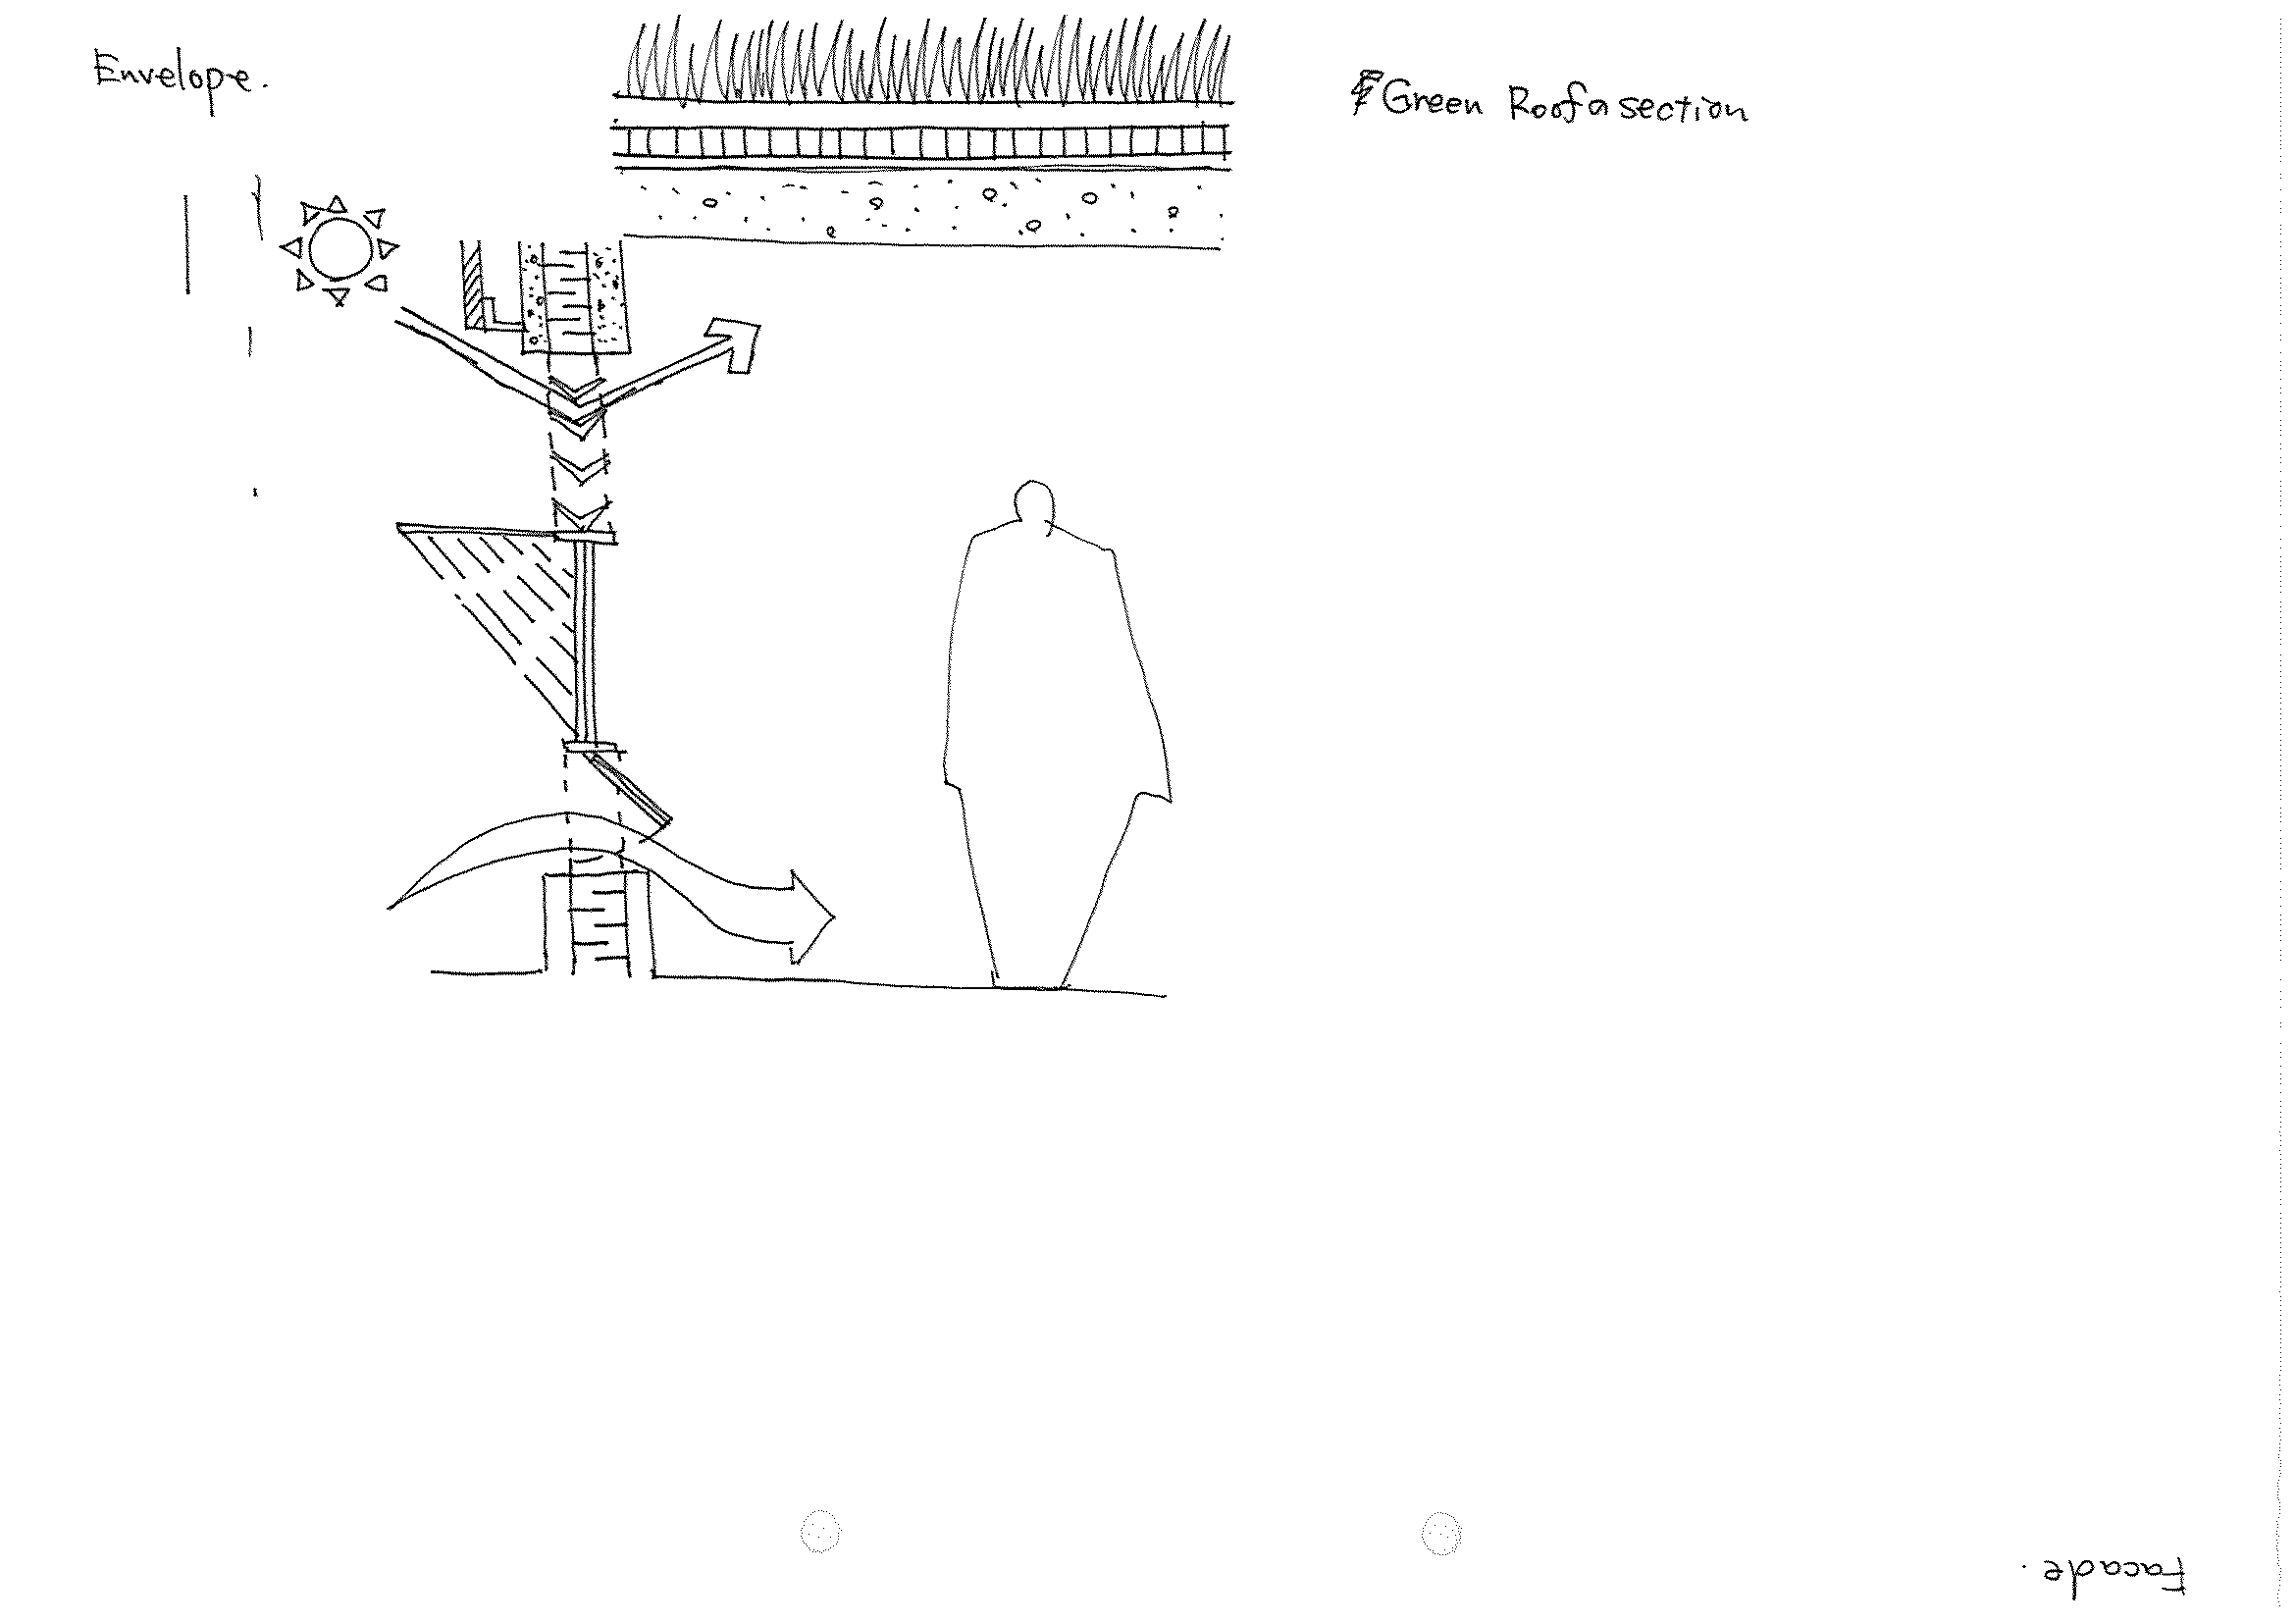 Envelope.
Green Roof a section
Facade.